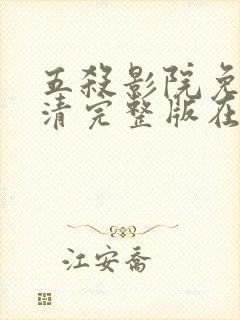 五殺影院免
清完整版在
江安喬